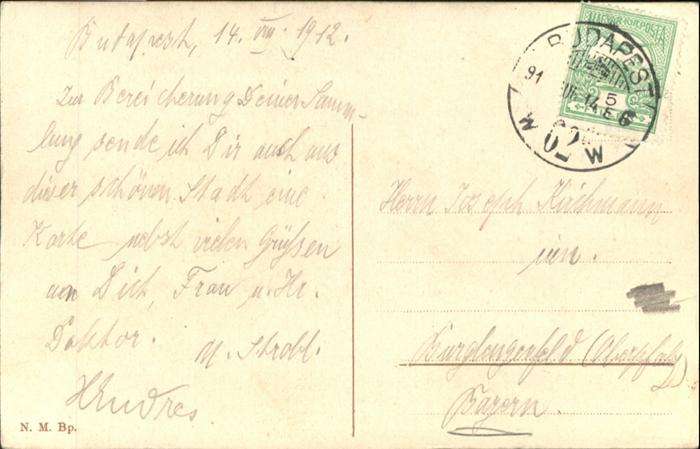 Budapest, 14. VII. 1912.
Zur Bereicherung Deiner Samm-
lung sende ich Dir auch aus
dieser schönen Stadt eine
Karte nebst vielen Grüßen
an Dich, Frau u. Hr.
Doktor.
M. Strobl.
HEndres
N. M. Bp.
BUDAPEST
62
Herrn Joseph Kirchmann,
jun.
Burglengenfeld (Oberpfalz)
Bayern.